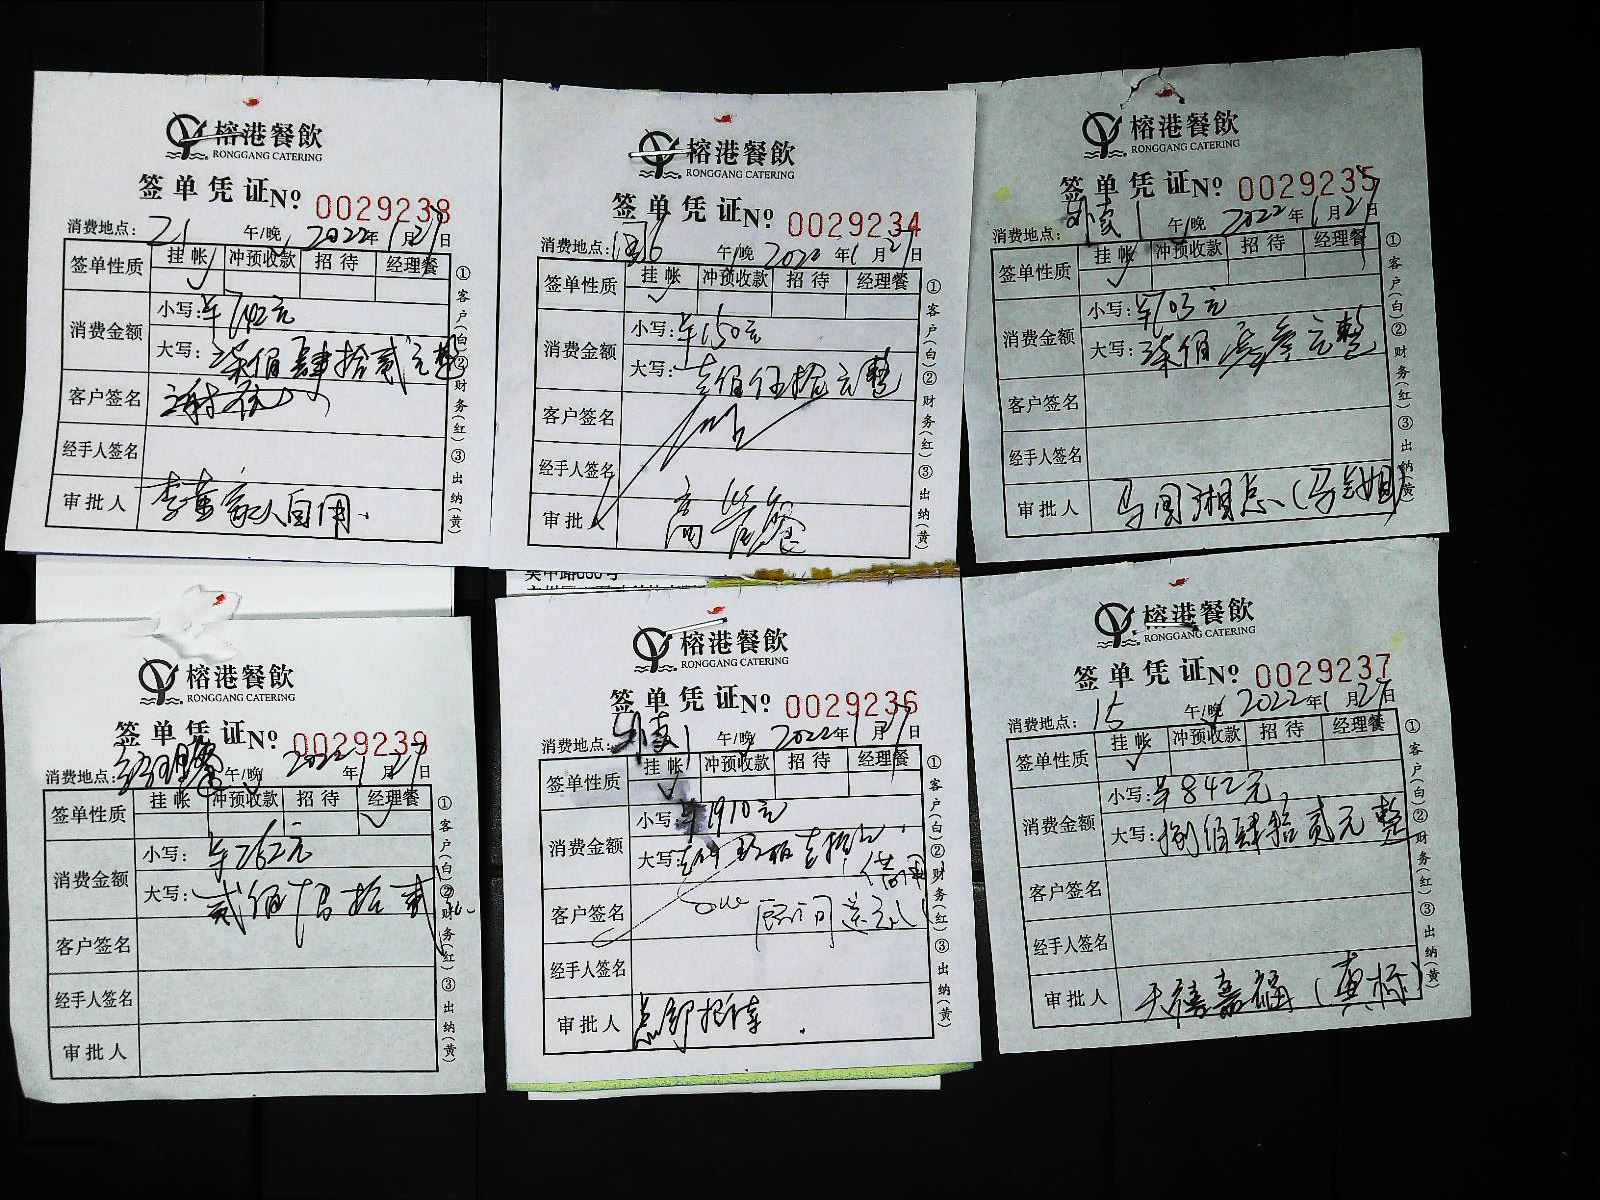 榕港餐飲
RONGGANG CATERING
签单凭证 No 0029238
消费地点: 21 午/晚 2022年1月27日
签单性质 挂帐 冲预收款 招待 经理餐
消费金额
小写: ¥742元
大写: 柒佰肆拾贰元整
客户签名
经手人签名
审批人 李董家人自用
①客户(白)②财务(红)③出纳(黄)
榕港餐飲
RONGGANG CATERING
签单凭证 No 0029234
消费地点: 午/晚 2022年1月27日
签单性质 挂帐 冲预收款 招待 经理餐
消费金额
小写: ¥150元
大写: 壹佰伍拾元整
客户签名
经手人签名
审批人 高管餐
①客户(白)②财务(红)③出纳(黄)
榕港餐飲
RONGGANG CATERING
签单凭证 No 0029235
消费地点: 外卖1 午/晚 2022年1月27日
签单性质 挂帐 冲预收款 招待 经理餐
消费金额
小写: ¥703元
大写: 柒佰零叁元整
客户签名
经手人签名
审批人 马国湘总
①客户(白)②财务(红)③出纳(黄)
榕港餐飲
RONGGANG CATERING
签单凭证 No 0029239
消费地点: 经理餐 午/晚 2022年1月27日
签单性质 挂帐 冲预收款 招待 经理餐
消费金额
小写: ¥262元
大写: 贰佰陆拾贰元
客户签名
经手人签名
审批人
①客户(白)②财务(红)③出纳(黄)
吴中路686号
榕港餐飲
RONGGANG CATERING
签单凭证 No 0029236
消费地点: 外卖1 午/晚 2022年1月27日
签单性质 挂帐 冲预收款 招待 经理餐
消费金额
小写: ¥1910元
大写: 壹仟玖佰壹拾元
客户签名 顾问送礼
经手人签名
审批人 总部招待
①客户(白)②财务(红)③出纳(黄)
榕港餐飲
RONGGANG CATERING
签单凭证 No 0029237
消费地点: 15 午/晚 2022年1月27日
签单性质 挂帐 冲预收款 招待 经理餐
消费金额
小写: ¥842元
大写: 捌佰肆拾贰元整
客户签名
经手人签名
审批人 天禧嘉福
①客户(白)②财务(红)③出纳(黄)